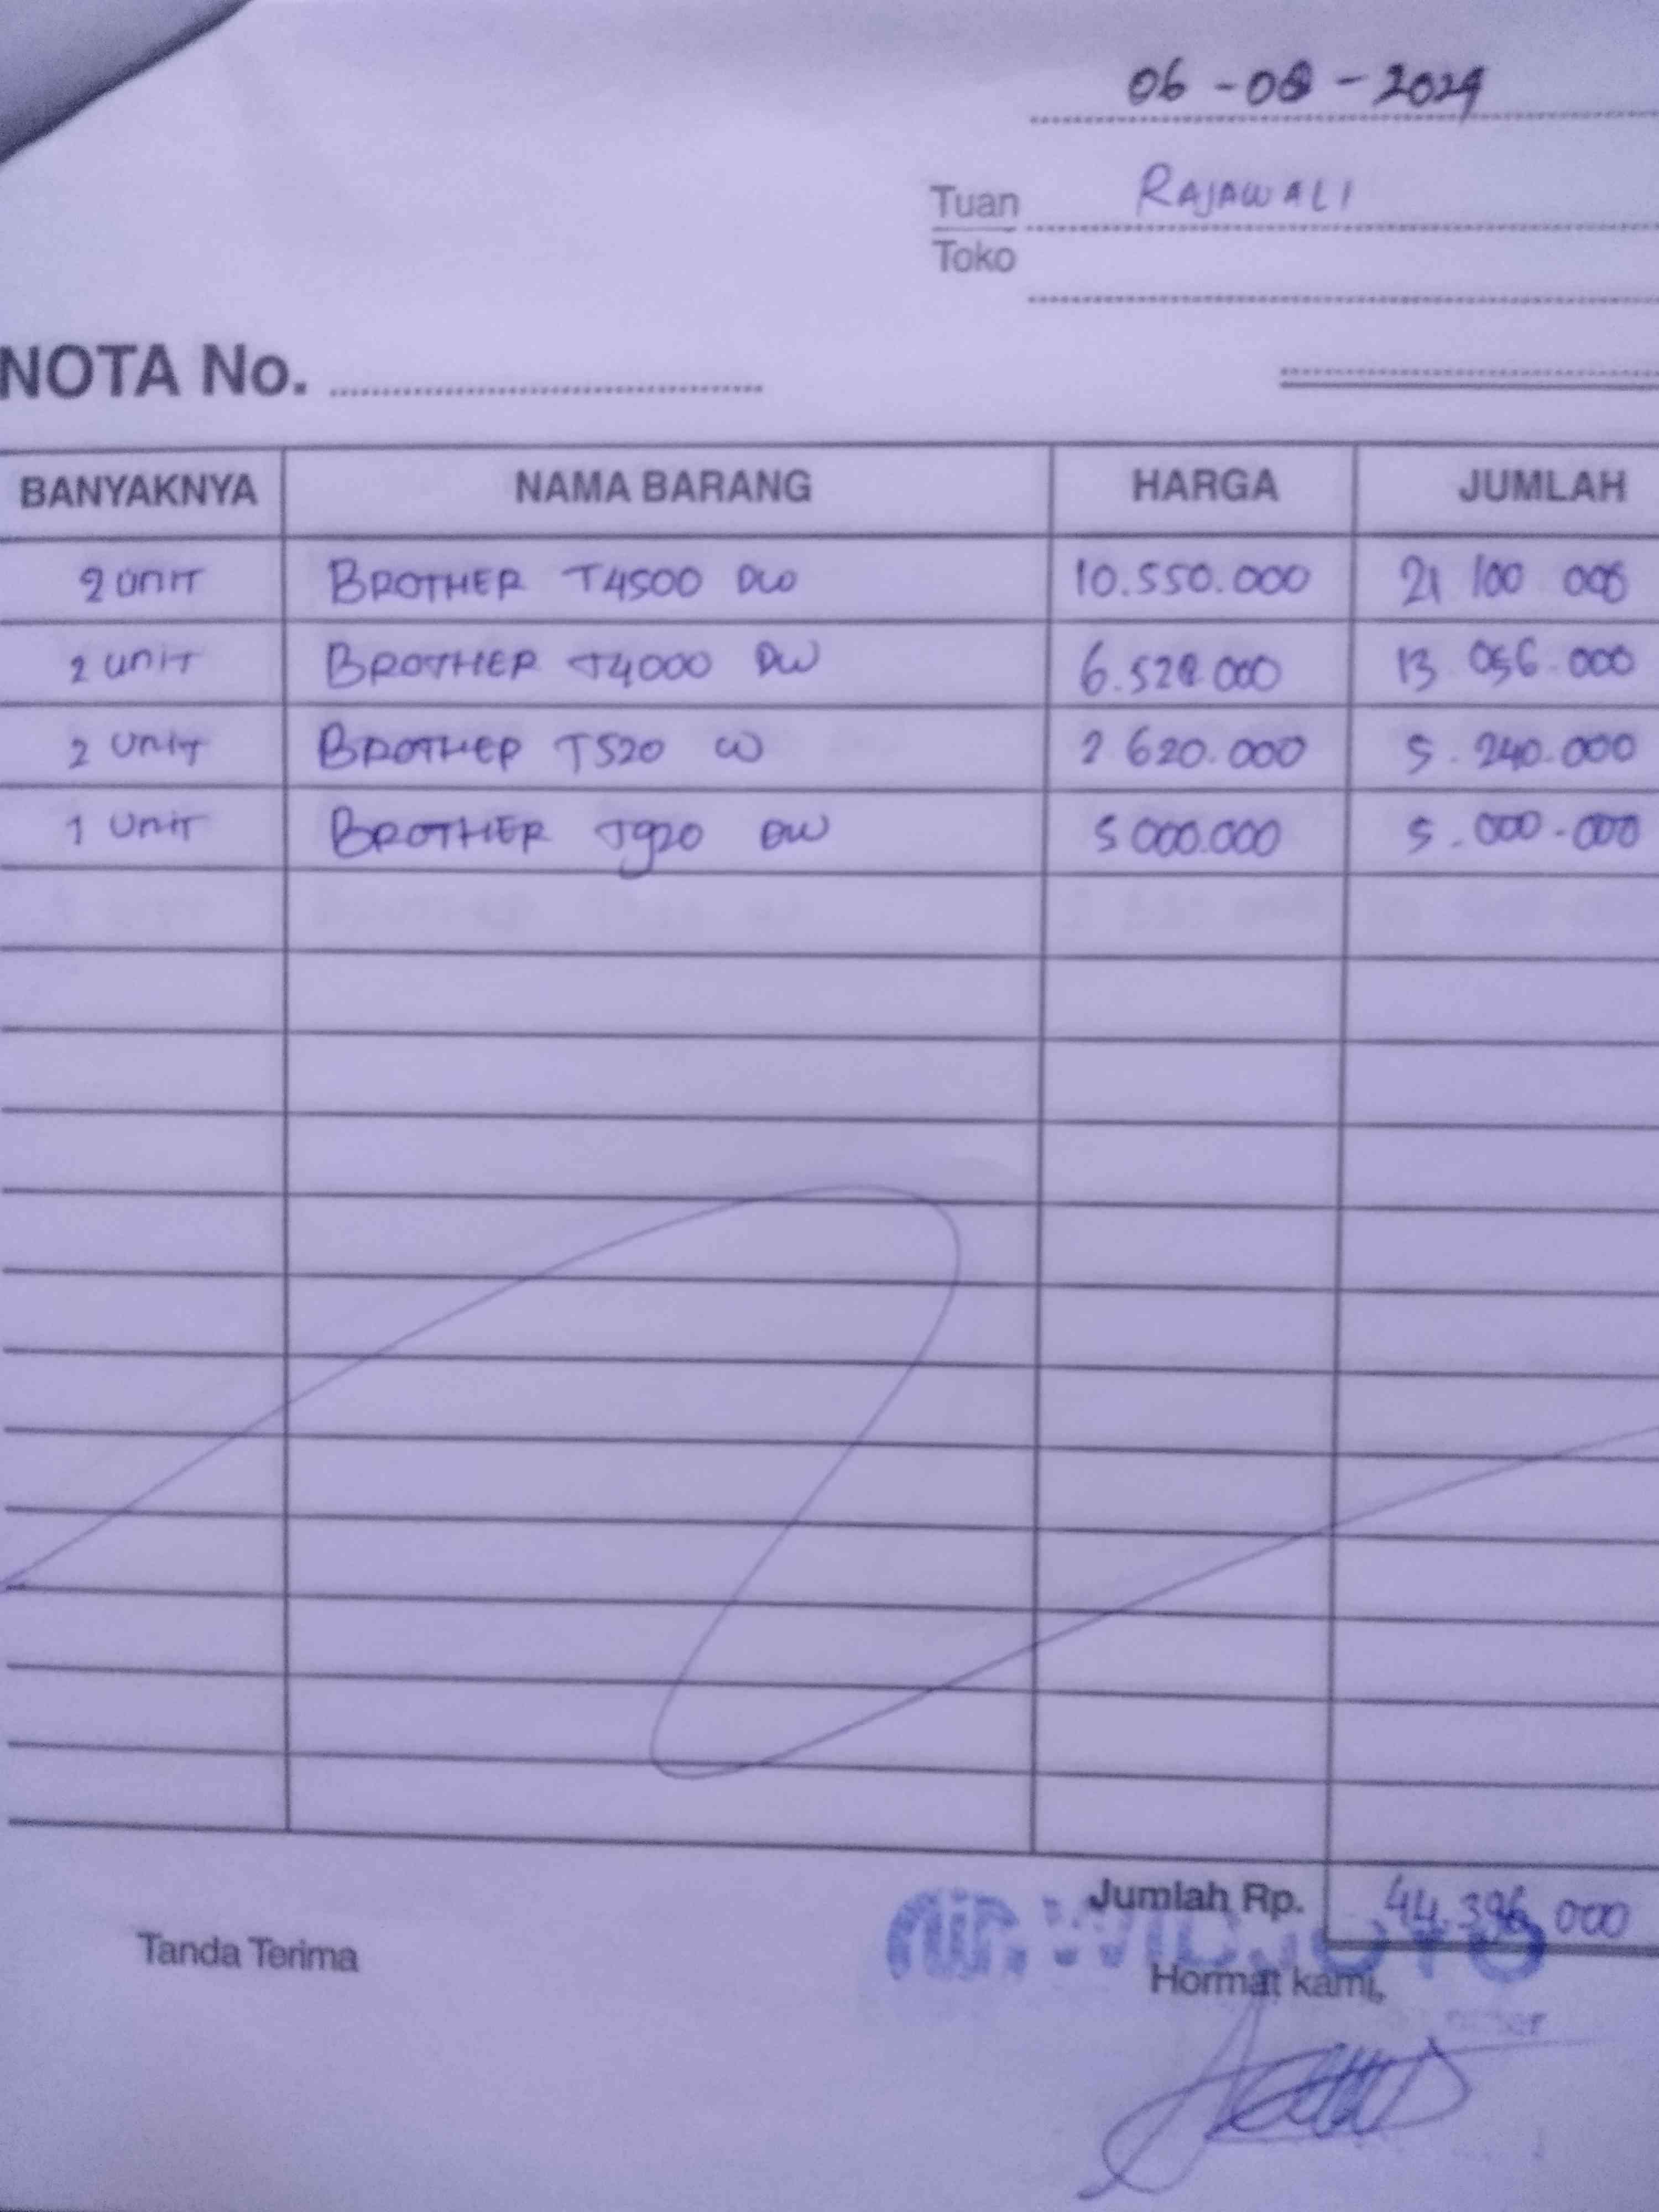 06 - 08 - 2024
Tuan RAJAWALI
Toko
NOTA No.
BANYAKNYA NAMA BARANG HARGA JUMLAH
2 UNIT BROTHER T4500 DW 10.550.000 21 100 000
2 UNIT BROTHER T4000 DW 6.528.000 13 056.000
2 UNIT BROTHER T520 W 2 620.000 5.240.000
1 UNIT BROTHER T920 DW 5 000.000 5.000.000
Jumlah Rp. 44.396 000
Tanda Terima Hormat kami,